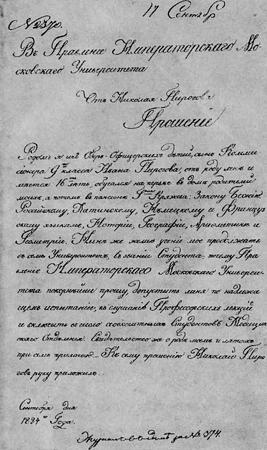 № 370.
11 Сентябр
Въ Правленіе Императорскаго Мо-
сковскаго Университета
Отъ Николая Пирогова
Прошеніе
Родомъ я изъ Оберъ-Офицерскихъ дѣтей, сынъ Комми-
сіонера 9го класса Ивана Пирогова; отъ роду мнѣ
имѣется 16ть лѣтъ, обучался на прежде въ домѣ родителей
моихъ, а потомъ въ пансіонѣ Гна Кряжева: Закону Божію,
Россійскому, Латинскому, Нѣмецкому и Француз-
скому языкамъ, Исторіи, Географіи, Ариѳметикѣ и
Геометріи. Нынѣ же желаю ученіе мое продолжать
въ семъ Университетѣ, въ званіи Студента; почему Пра-
вленіе Императорскаго Московскаго Университе-
та покорнѣйше прошу, допустить меня по надлежа-
щемъ испытаніи, къ слушанію Профессорскихъ лекцій
и включить въ число своекоштныхъ Студентовъ Медицин-
скаго Отдѣленія. Свидѣтельство же о родѣ моемъ и лѣтахъ
при семъ прилагаю. Къ сему прошенію Николай Пиро-
говъ руку приложилъ.
Сентября дня
1824 Года.
№ 374.